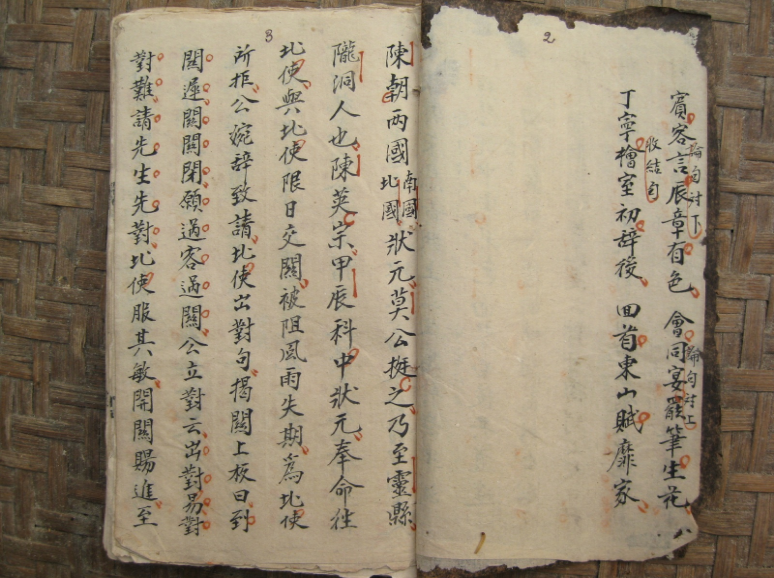 2
賓容言辰章有色 會同宴罷筆生花
句对下
句对上
丁寧檜室初辞後 回首東山賦靡家
收結句
3
陳朝兩國南國北國狀元莫公挺之乃至靈縣
隴洞人也陳英宗甲辰科中狀元奉命往
北使與北使限日交關被阻風雨失期為北使
所拒公婉辞致請北使出對句揭關上板曰到
關遲關關閉願過客過關公立對云出對易對
對難請先生先對北使服其敏開關賜進至